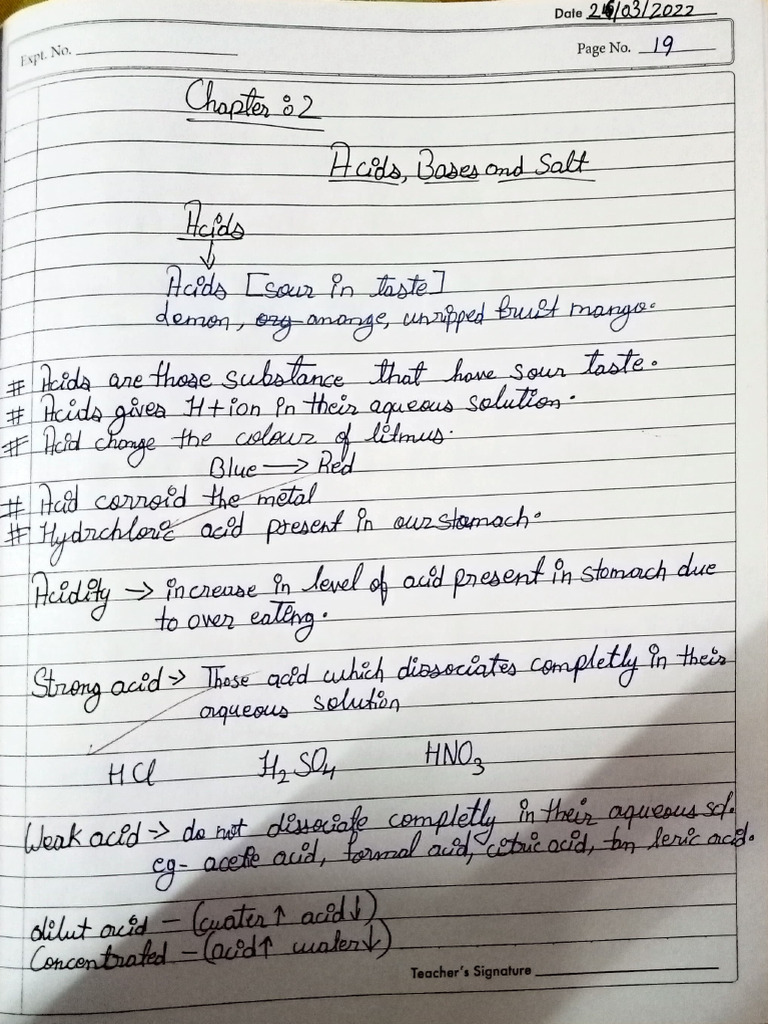 Date 26/03/2022
Expt. No.
Page No. 19
Chapter : 2
Acids, Bases and Salt
Acids
↓
Acids [sour in taste]
demon, org anange, unripped fruit mango.
# Acids are those substance that have sour taste.
# Acids gives H+ion in their aqueous solution.
# Acid change the colour of litmus.
Blue → Red
# Acid corroid the metal
# Hydrchloric acid present in our stomach.
Acidity → increase in level of acid present in stomach due
to over eating.
Strong acid → Those acid which dissociates completly in their
aqueous solution
HCl H₂SO₄ HNO₃
Weak acid → do not dissociate completly in their aqueous sol.
eg- acetic acid, formal acid, citric acid, acid.
dilut acid - (water↑ acid↓)
Concentrated - (acid↑ water↓)
Teacher's Signature